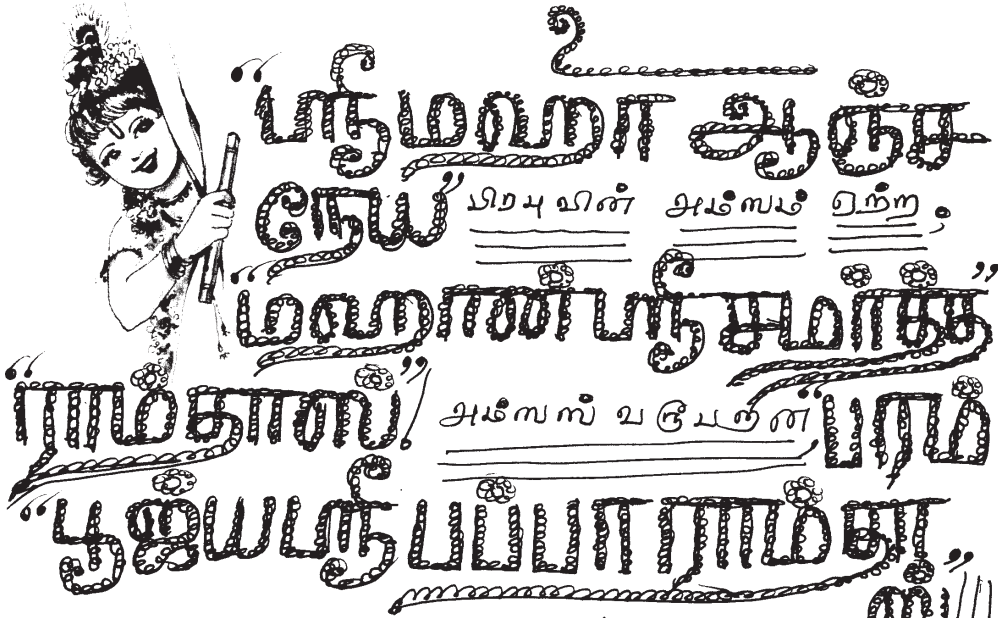 உ
"ஸ்ரீமஹா ஆஞ்ச
நேய" பிரபுவின் அம்ஸம் ஏற்ற,
"மஹாண்ஸ்ரீ சமர்த்த"
"ராம்தாஸ்"! அம்ஸஸ் வரூபனான, "பரம்
"பூஜ்யஸ்ரீ பப்பாராம்தா
ஸ்"